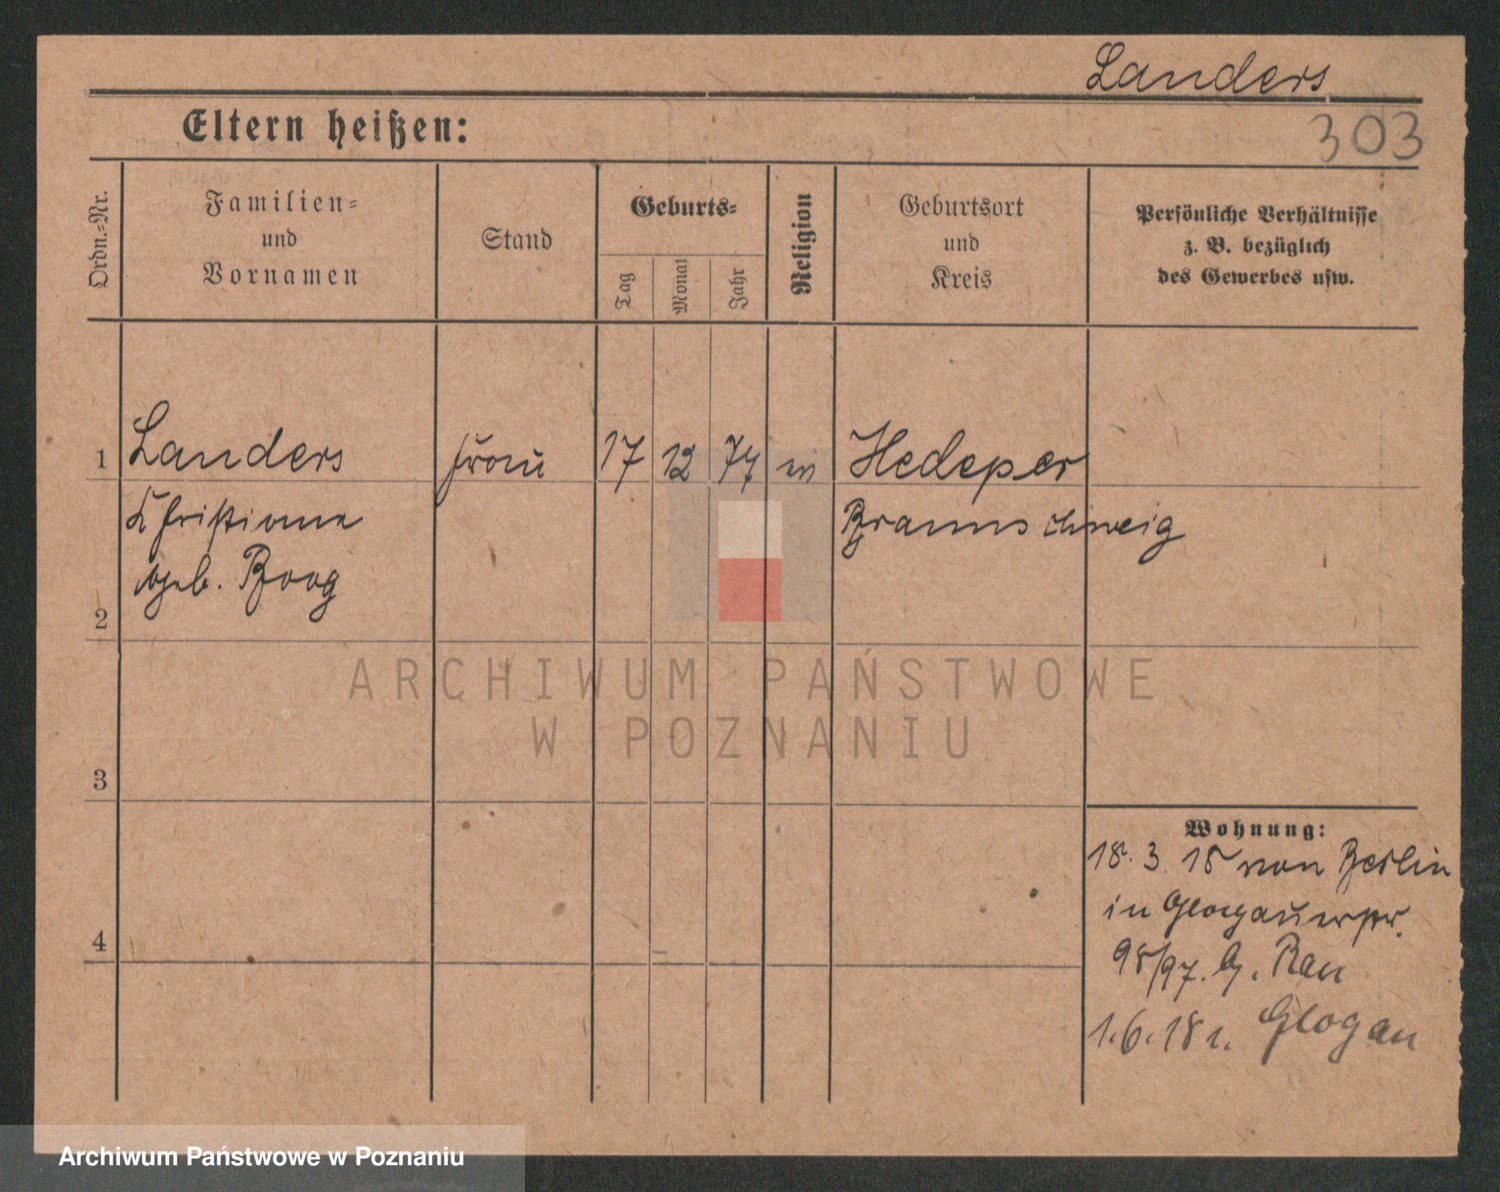 Landers
303
Eltern heißen:
Ordn.-Nr.
Familien-
und
Vornamen
Stand
Geburts-
Tag
Monat
Jahr
Religion
Geburtsort
und
Kreis
Persönliche Verhältnisse
z. B. bezüglich
des Gewerbes usw.
1 Landers Frau 17 12 74 Hedeper
Christiane Braunschweig
geb. Boog
2
3
4
Wohnung:
18. 3. 18 von Berlin
in Glogauerstr.
/97. b. Rau
1.6.18 n. Glogau
ARCHIWUM PAŃSTWOWE
W POZNANIU
Archiwum Państwowe w Poznaniu